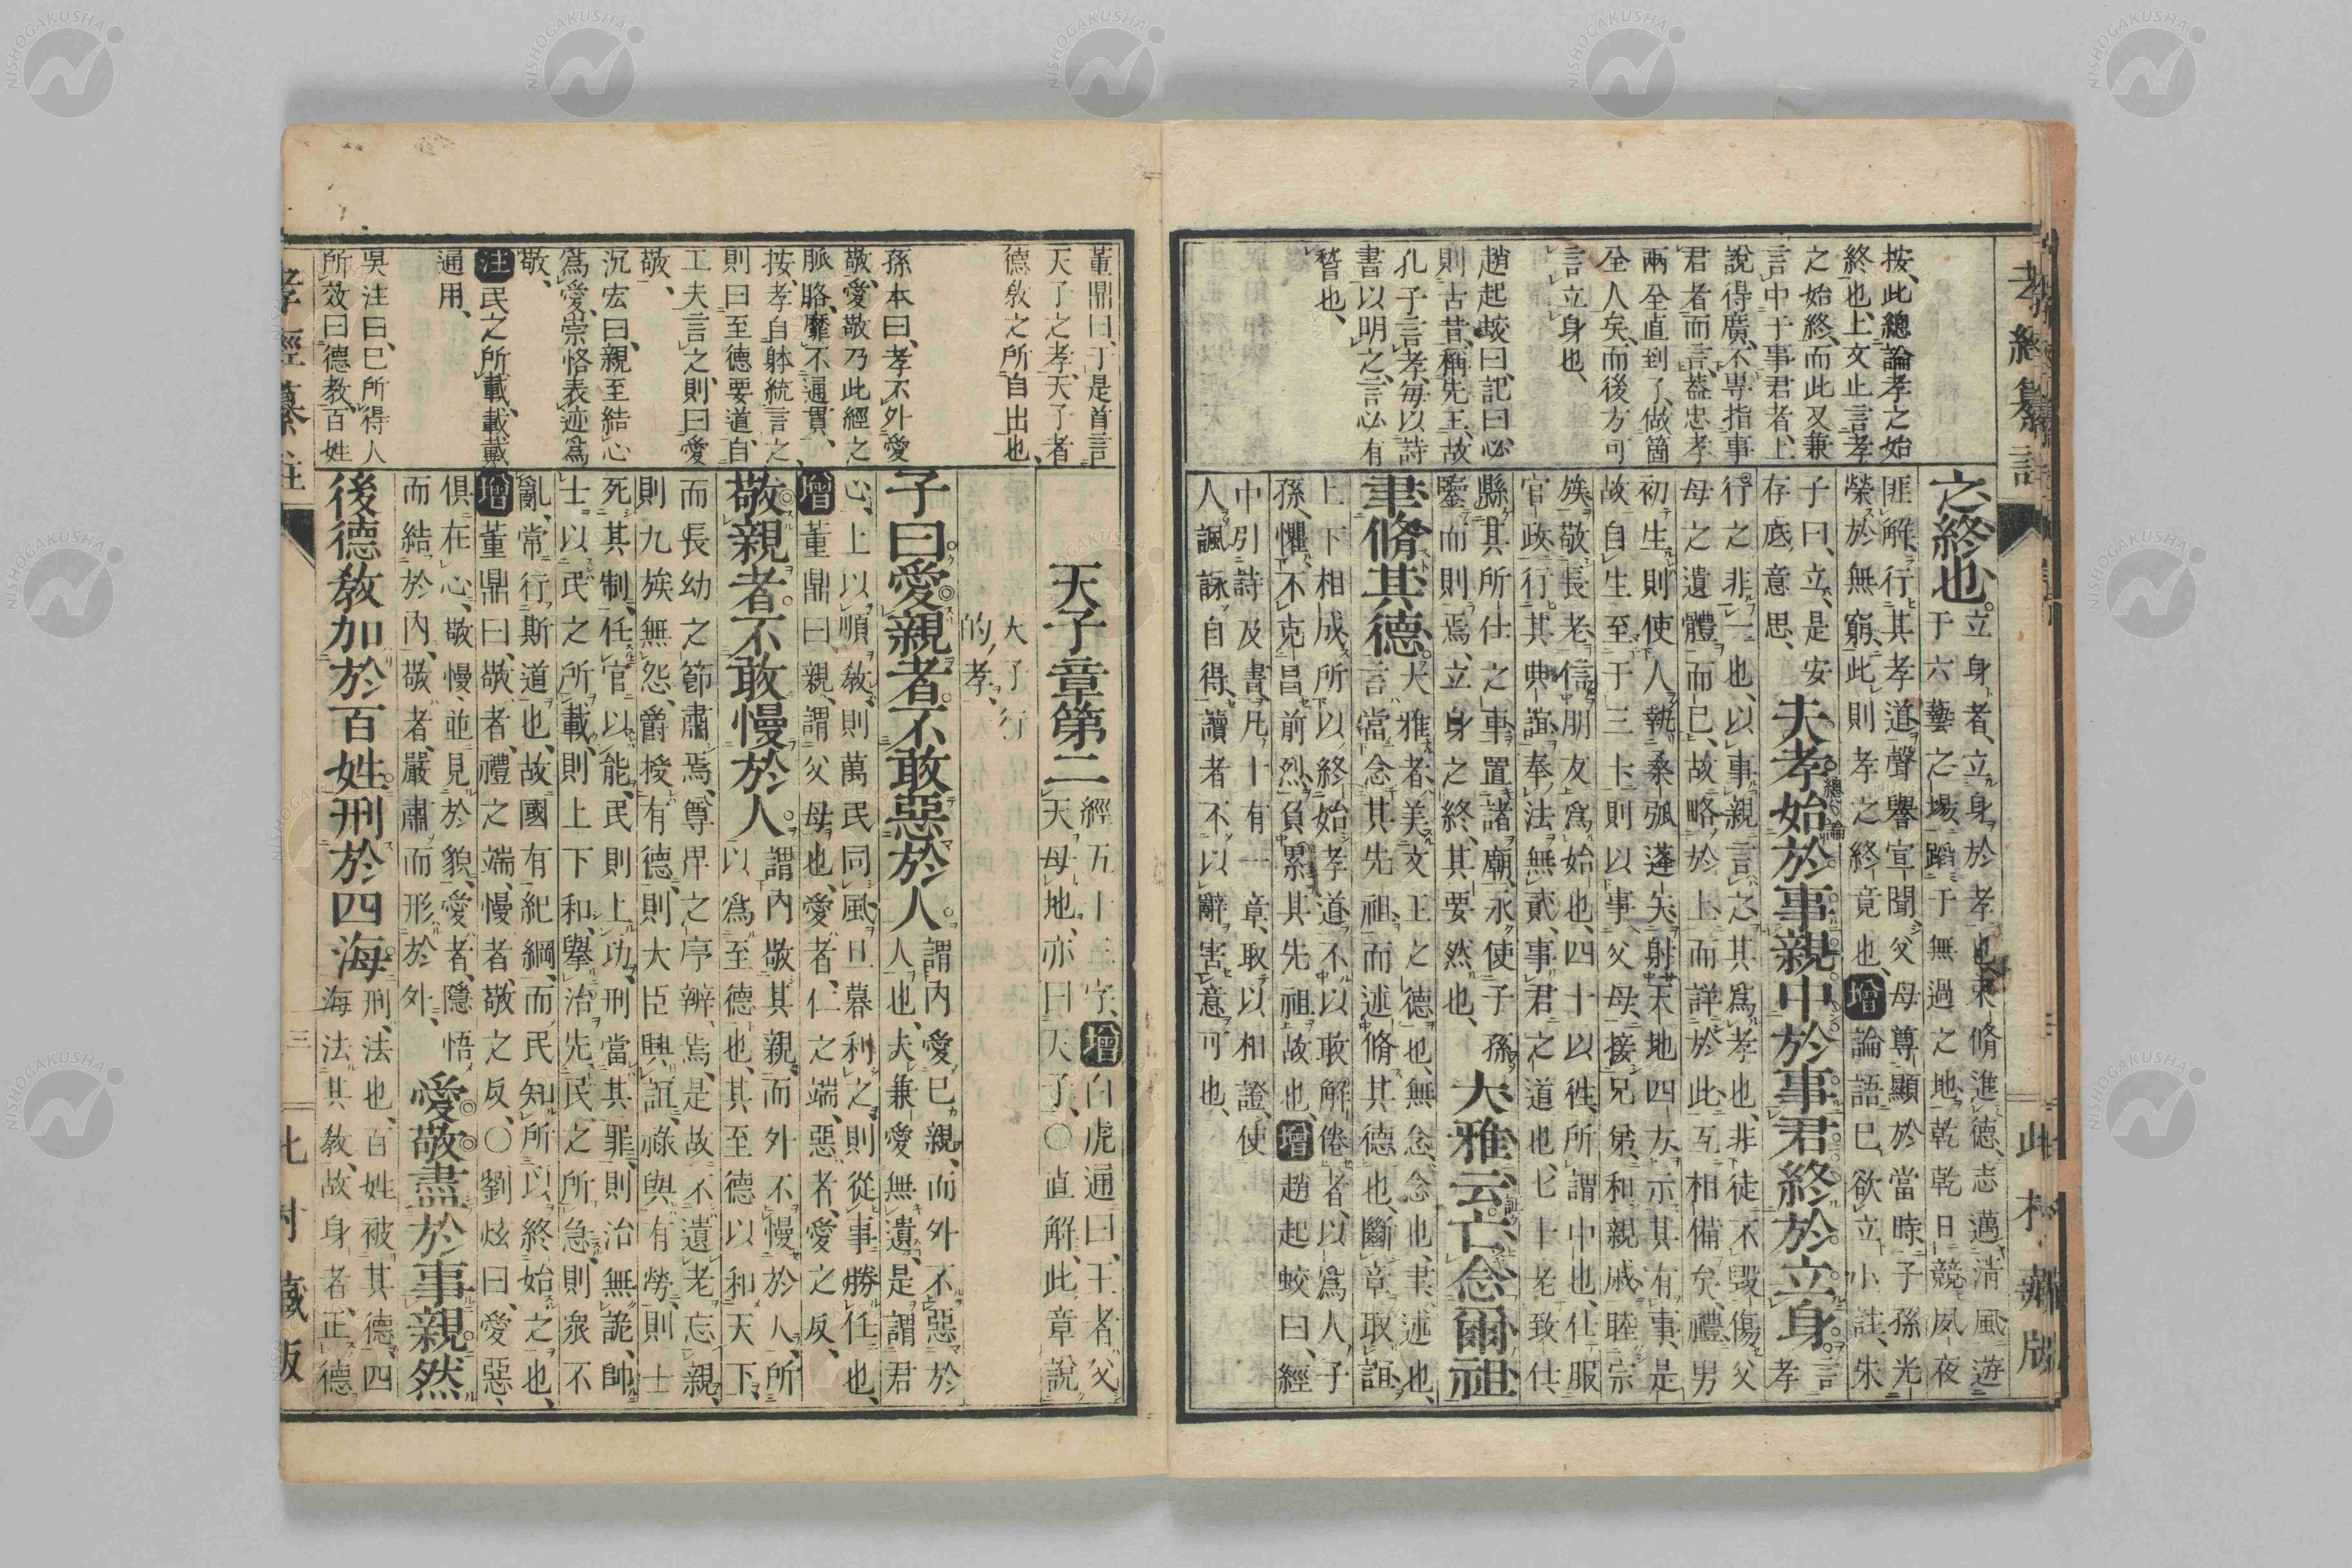 孝經纂註
此村藏版
按、此總論孝之始
終也、上文止言孝
之始終、而此又兼
言中于事君者、上
說得廣、不專指事
君者而言、葢忠孝
兩全直到了、做箇
全人矣、而後方可
言立身也、
趙起蛟曰、記曰、必
則古昔、稱先王、故
孔子言孝、每以詩
書以明之、言必有
也、
之終也。
立身者、立身於孝也、束脩進德、志邁淸風、遊
于六藝之場、蹈于無過之地、乾乾日競、夙夜
匪解、行其孝道、聲譽宣聞、父母尊顯於當時、子孫光
榮於無窮、此則孝之終竟也、增論語巳欲立小註、朱
子曰、立、是安
存底意思、
夫孝始於事親中於事君終於立身。
總論
言孝
行之非一也、以事親言之、其爲孝也、非徒不毀傷父
母之遺體而巳、故略於上、而詳於此、互相備矣、禮、男
初生、則使人執桑弧蓬矢、射天地四方、示其有事、是
故自生至于三十、則以事父母、接兄弟、和親戚、睦宗
族、敬長老、信朋友爲始也、四十以徃、所謂中也、仕服
官政、行其典誼、奉法無貳、事君之道也、七十老致仕、
縣其所仕之車、置諸廟、永使子孫
鑒而則焉、立身之終、其要然也、
大雅云亡念爾祖
聿脩其德。
大雅者、美文王之德也、無念、念也、聿、述也、
言當念其先祖、而述脩其德也、斷章取誼、
上下相成、所以終始孝道、不以敢解倦者、以爲人子
孫、懼不克昌前烈、負累其先祖故也、增趙起蛟曰、經
中引詩及書、凡十有一章、取以相證、使
人諷詠自得、讀者不以辭害意可也、
董鼎曰、于是首言
天子之孝、天子者
德敎之所自出也、
孫本曰、孝不外愛
敬、愛敬乃此經之
脈胳、靡不通貫、
按、孝自躰統言之、
則曰至德要道、自
工夫言之、則曰愛
敬、
沉宏曰、親至結心
爲愛、崇恪表迹爲
敬、
注民之所載、載、戴
通用、
吳注曰、巳所得人
所效曰德敎、百姓
天子章第二
經五十五字、增白虎通曰、王者父
天母地、亦曰天子、○直解、此章說
天子行
的孝、
子曰愛親者不敢惡於人。
謂內愛巳親、而外不惡於
人也、夫兼愛無遺、是謂君
心、上以順敎、則萬民同風、旦暮利之、則從事勝任也、
增董鼎曰、親、謂父母也、愛者、仁之端、惡者、愛之反、
敬親者不敢慢於人。
謂內敬其親、而外不慢於人、所
以爲至德也、其至德以和天下、
而長幼之節肅焉、尊卑之序辨焉、是故不遺老忘親、
則九族無怨、爵授有德、則大臣興誼、祿與有勞、則士
死其制、任官以能、民則上功、刑當其罪、則治無詭、帥
士以民之所載、則上下和、擧治先民之所急、則衆不
亂、常行斯道也、故國有紀綱、而民知所以終始之也、
增董鼎曰、敬者、禮之端、慢者、敬之反、○劉炫曰、愛惡、
俱在心、敬慢並見於貌、愛者、隱悟
而結於內、敬者、嚴肅而形於外、
愛敬盡於事親然
後德敎加於百姓。刑於四海。
刑、法也、百姓被其德、四
海法其敎、故身者、正、德
孝經纂註
三
此村藏版